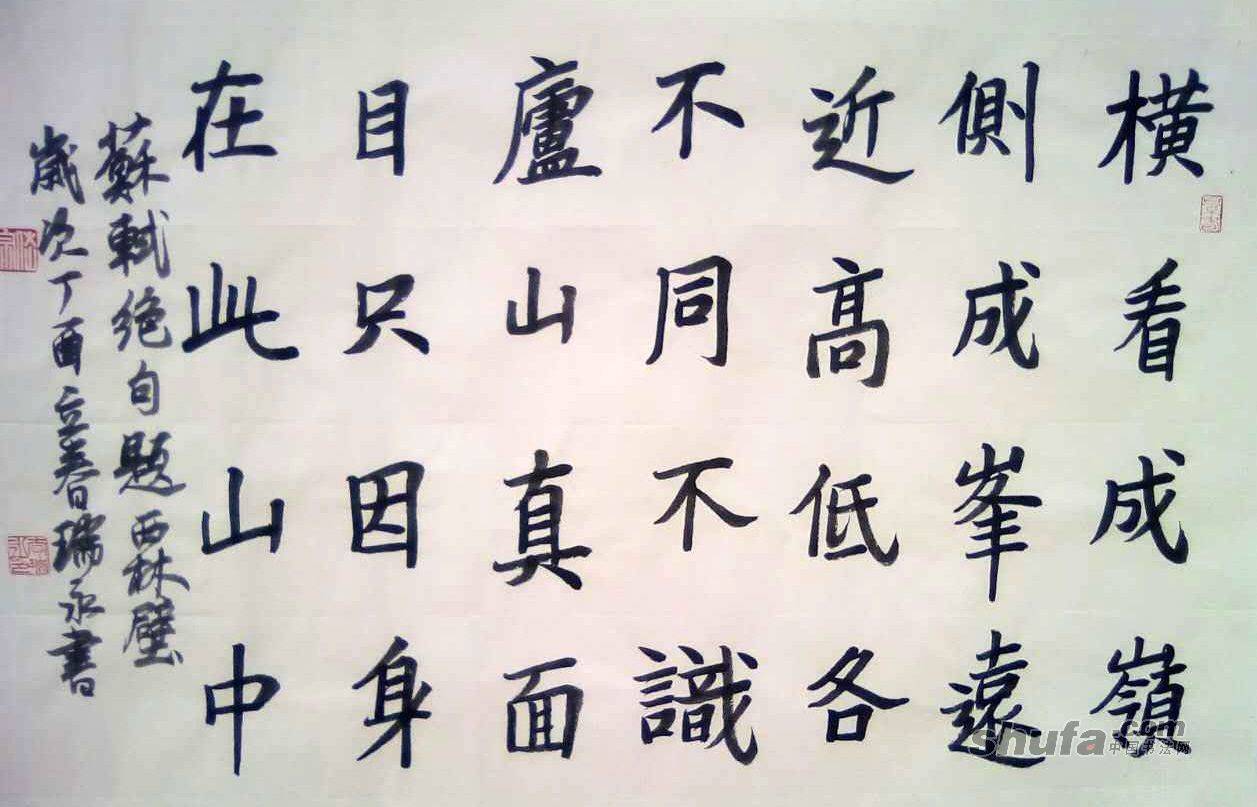 橫看成嶺
側成峯遠
近高低各
不同不識
廬山真面
目只因身
在此山中
蘇軾絕句題西林壁
歲次丁酉立春日瑞永書
shufa.com
中国书法网